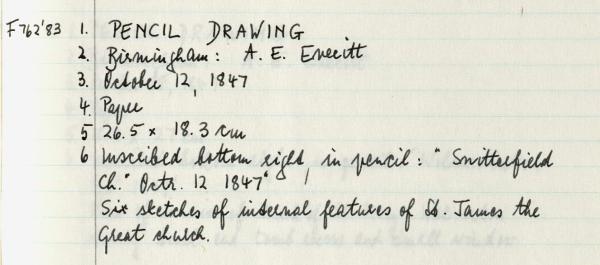 F762'83 1. PENCIL DRAWING
2. Birmingham: A. E. Everitt
3. October 12, 1847
4. Paper
5 26.5 x 18.3 cm
6 Inscribed bottom right, in pencil: "Snitterfield
Ch." Octr. 12 1847"
Six sketches of internal features of St. James the
Great church.